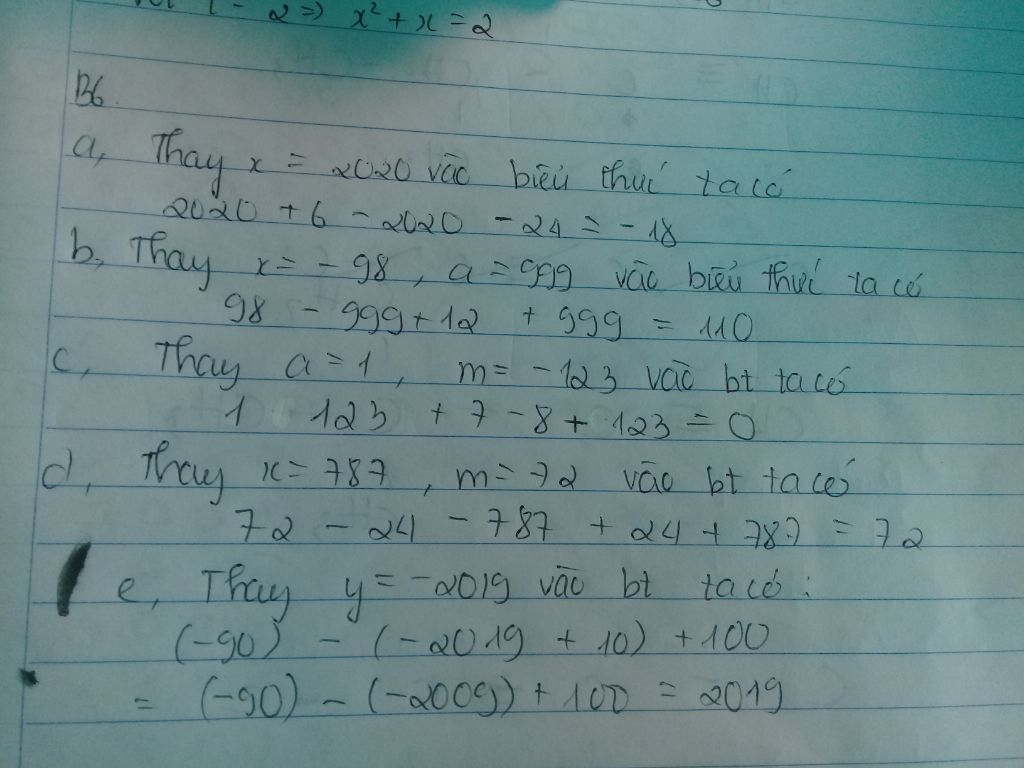 2 => x² + x = 2
B6.
a, Thay x = 2020 vào biểu thức ta có
2020 + 6 - 2020 - 24 = -18
b, Thay x = -98, a = 999 vào biểu thức ta có
98 - 999 + 12 + 999 = 110
c, Thay a = 1, m = -123 vào bt ta có
1 123 + 7 - 8 + 123 = 0
d, Thay x = 787, m = 72 vào bt ta có
72 - 24 - 787 + 24 + 787 = 72
e, Thay y = -2019 vào bt ta có:
(-90) - (-2019 + 10) + 100
= (-90) - (-2009) + 100 = 2019